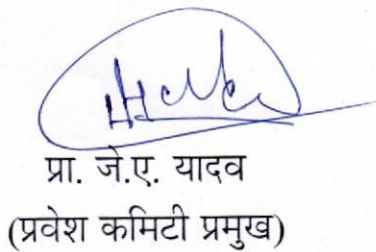 प्रा. जे.ए. यादव
(प्रवेश कमिटी प्रमुख)